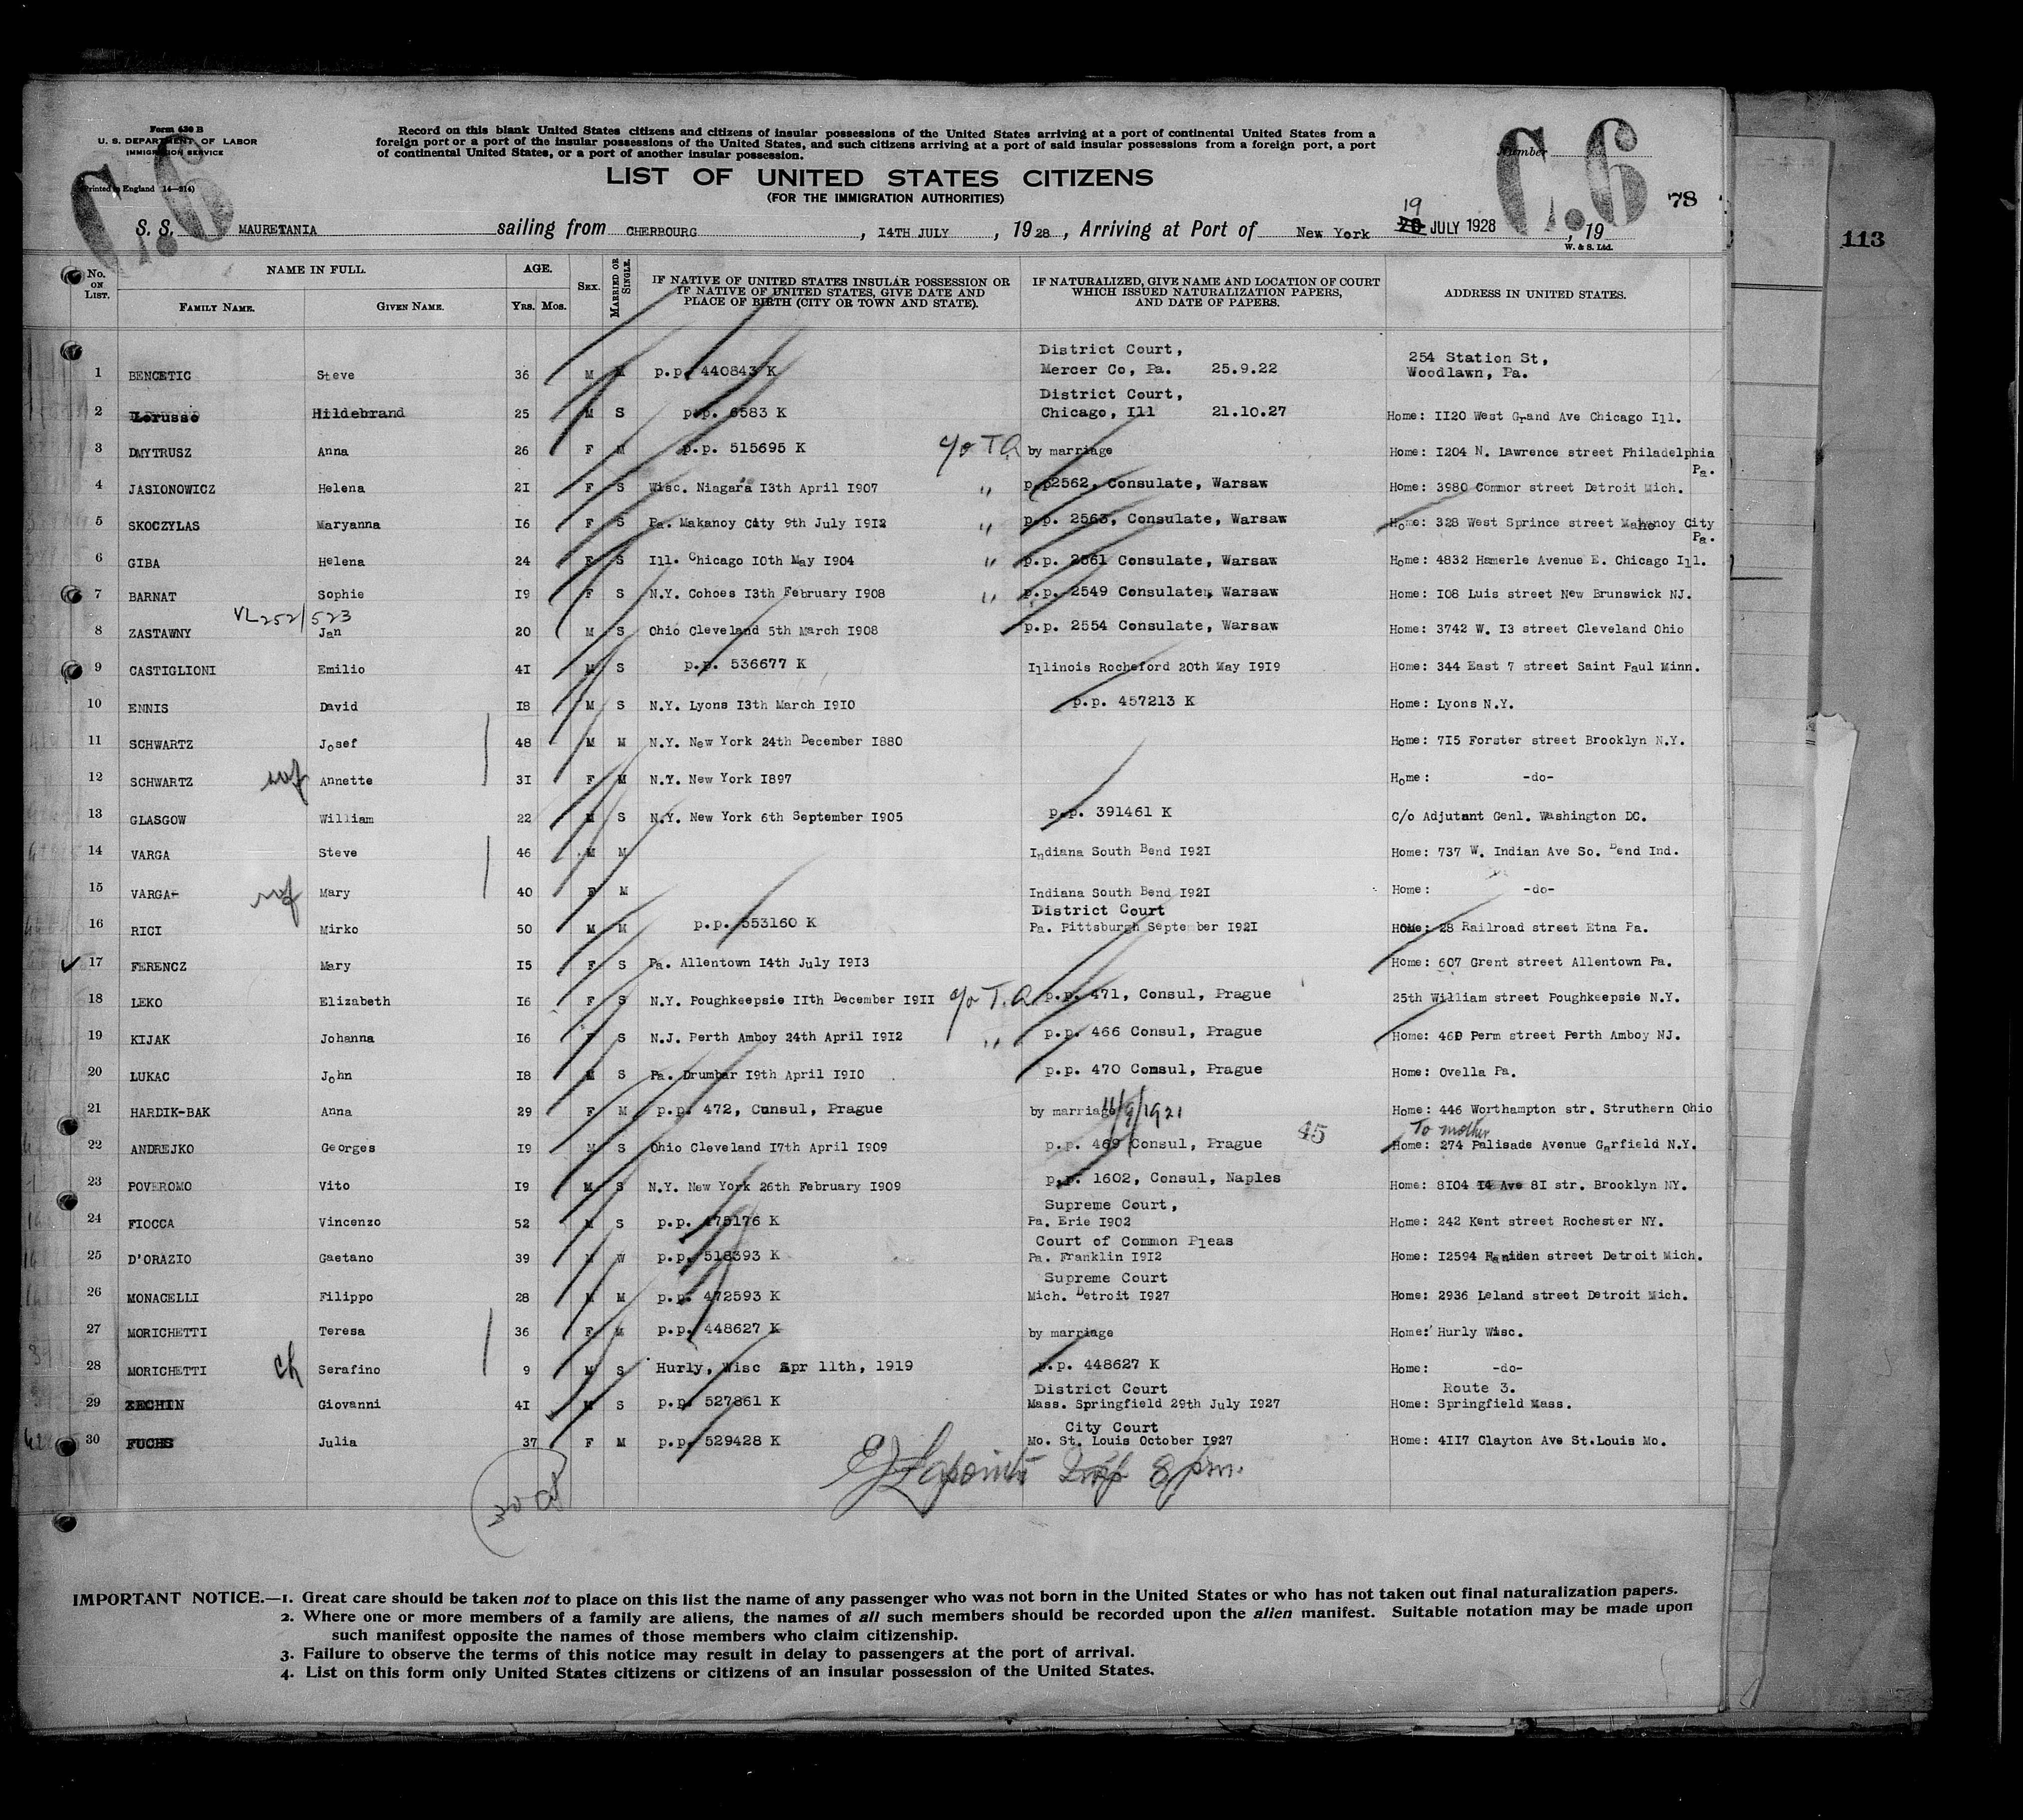 Form 630 B
U. S. DEPARTMENT OF LABOR
IMMIGRATION SERVICE
(Printed in England 14—214)
C.6
Record on this blank United States citizens and citizens of insular possessions of the United States arriving at a port of continental United States from a
foreign port or a port of the insular possessions of the United States, and such citizens arriving at a port of said insular possessions from a foreign port, a port
of continental United States, or a port of another insular possession.
LIST OF UNITED STATES CITIZENS
(FOR THE IMMIGRATION AUTHORITIES)
Number
C.6
78
113
S. S. MAURETANIA sailing from CHERBOURG, I4TH JULY, 1928, Arriving at Port of New York 19 20 JULY 1928, 19
W. & S. Ltd.
No. ON LIST. NAME IN FULL. FAMILY NAME. GIVEN NAME. AGE. Yrs. Mos. SEX. MARRIED OR SINGLE. IF NATIVE OF UNITED STATES INSULAR POSSESSION OR IF NATIVE OF UNITED STATES, GIVE DATE AND PLACE OF BIRTH (CITY OR TOWN AND STATE). IF NATURALIZED, GIVE NAME AND LOCATION OF COURT WHICH ISSUED NATURALIZATION PAPERS, AND DATE OF PAPERS. ADDRESS IN UNITED STATES.
1 BENCETIC Steve 36 M M p.p. 440843 K District Court, Mercer Co, Pa. 25.9.22 254 Station St, Woodlawn, Pa.
2 Lerusse Hildebrand 25 M S p.p. 6583 K District Court, Chicago, Ill 21.10.27 Home: II20 West Grand Ave Chicago Ill.
3 DMYTRUSZ Anna 26 F M p.p. 515695 K c/o T.A by marriage Home: I204 N. Lawrence street Philadelphia Pa.
4 JASIONOWICZ Helena 2I F S Wisc. Niagara I3th April I907 " p.p2562, Consulate, Warsaw Home: 3980 Commor street Detroit Mich.
5 SKOCZYLAS Maryanna I6 F S Pa. Makanoy City 9th July I9I2 " p.p. 2563, Consulate, Warsaw Home: 328 West Sprince street Mahanoy City Pa.
6 GIBA Helena 24 F S Ill. Chicago I0th May I904 " p.p. 2561 Consulate, Warsaw Home: 4832 Hamerle Avenue E. Chicago Ill.
7 BARNAT Sophie I9 F S N.Y. Cohoes I3th February I908 " p.p. 2549 Consulate, Warsaw Home: I08 Luis street New Brunswick NJ.
VL252/523
8 ZASTAWNY Jan 20 M S Ohio Cleveland 5th March I908 p.p. 2554 Consulate, Warsaw Home: 3742 W. I3 street Cleveland Ohio
9 CASTIGLIONI Emilio 4I M S p.p. 536677 K Illinois Rocheford 20th May I9I9 Home: 344 East 7 street Saint Paul Minn.
10 ENNIS David I8 M S N.Y. Lyons I3th March I9I0 p.p. 457213 K Home: Lyons N.Y.
11 SCHWARTZ Josef 48 M M N.Y. New York 24th December I880 Home: 7I5 Forster street Brooklyn N.Y.
12 SCHWARTZ wf Annette 3I F M N.Y. New York I897 Home: -do-
13 GLASGOW William 22 M S N.Y. New York 6th September I905 p.p. 391461 K C/o Adjutant Genl. Washington DC.
14 VARGA Steve 46 M M Indiana South Bend I92I Home: 737 W. Indian Ave So. Bend Ind.
15 VARGA- wf Mary 40 F M Indiana South Bend I92I Home: -do-
16 RICI Mirko 50 M M p.p. 553160 K District Court Pa. Pittsburgh September I92I Home: 28 Railroad street Etna Pa.
17 FERENCZ Mary I5 F S Pa. Allentown I4th July I9I3 Home: 607 Grent street Allentown Pa.
18 LEKO Elizabeth I6 F S N.Y. Poughkeepsie IIth December I9II c/o T.A. p.p. 471, Consul, Prague 25th William street Poughkeepsie N.Y.
19 KIJAK Johanna I6 F S N.J. Perth Amboy 24th April I9I2 " p.p. 466 Consul, Prague Home: Perm street Perth Amboy NJ.
20 LUKAC John I8 M S Pa. Drumbar I9th April I9I0 p.p. 470 Consul, Prague Home: Ovella Pa.
21 HARDIK-BAK Anna 29 F M p.p. 472, Consul, Prague by marriage 11/9/1921 Home: 446 Worthampton str. Struthern Ohio
22 ANDREJKO Georges I9 M S Ohio Cleveland I7th April I909 p.p. 469 Consul, Prague 45 To mother Home: 274 Palisade Avenue Garfield N.Y.
23 POVEROMO Vito I9 M S N.Y. New York 26th February I909 p.p. 1602, Consul, Naples Home: 8I04 I4 Ave 8I str. Brooklyn NY.
24 FIOCCA Vincenzo 52 M S p.p. 475176 K Supreme Court, Pa. Erie I902 Home: 242 Kent street Rochester NY.
25 D'ORAZIO Gaetano 39 M W p.p. 518393 K Court of Common Pleas Pa. Franklin I9I2 Home: I2594 street Detroit Mich.
26 MONACELLI Filippo 28 M M p.p. 472593 K Supreme Court Mich. Detroit I927 Home: 2936 Leland street Detroit Mich.
27 MORICHETTI Teresa 36 F M p.p. 448627 K by marriage Home: Hurly Wisc.
28 MORICHETTI ch Serafino 9 M S Hurly, Wisc Apr 11th, 1919 p.p. 448627 K Home: -do-
29 ZECHIN Giovanni 4I M S p.p. 527861 K District Court Mass. Springfield 29th July I927 Route 3. Home: Springfield Mass.
30 FUCHS Julia 37 F M p.p. 529428 K City Court Mo. St. Louis October I927 Home: 4II7 Clayton Ave St.Louis Mo.
EJ Lapointe Insp 8 pm.
IMPORTANT NOTICE.—1. Great care should be taken not to place on this list the name of any passenger who was not born in the United States or who has not taken out final naturalization papers.
2. Where one or more members of a family are aliens, the names of all such members should be recorded upon the alien manifest. Suitable notation may be made upon
such manifest opposite the names of those members who claim citizenship.
3. Failure to observe the terms of this notice may result in delay to passengers at the port of arrival.
4. List on this form only United States citizens or citizens of an insular possession of the United States.